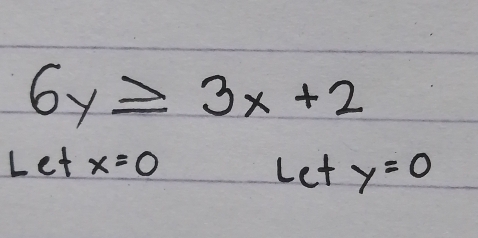 6y ≥ 3x + 2
Let x = 0 Let y = 0